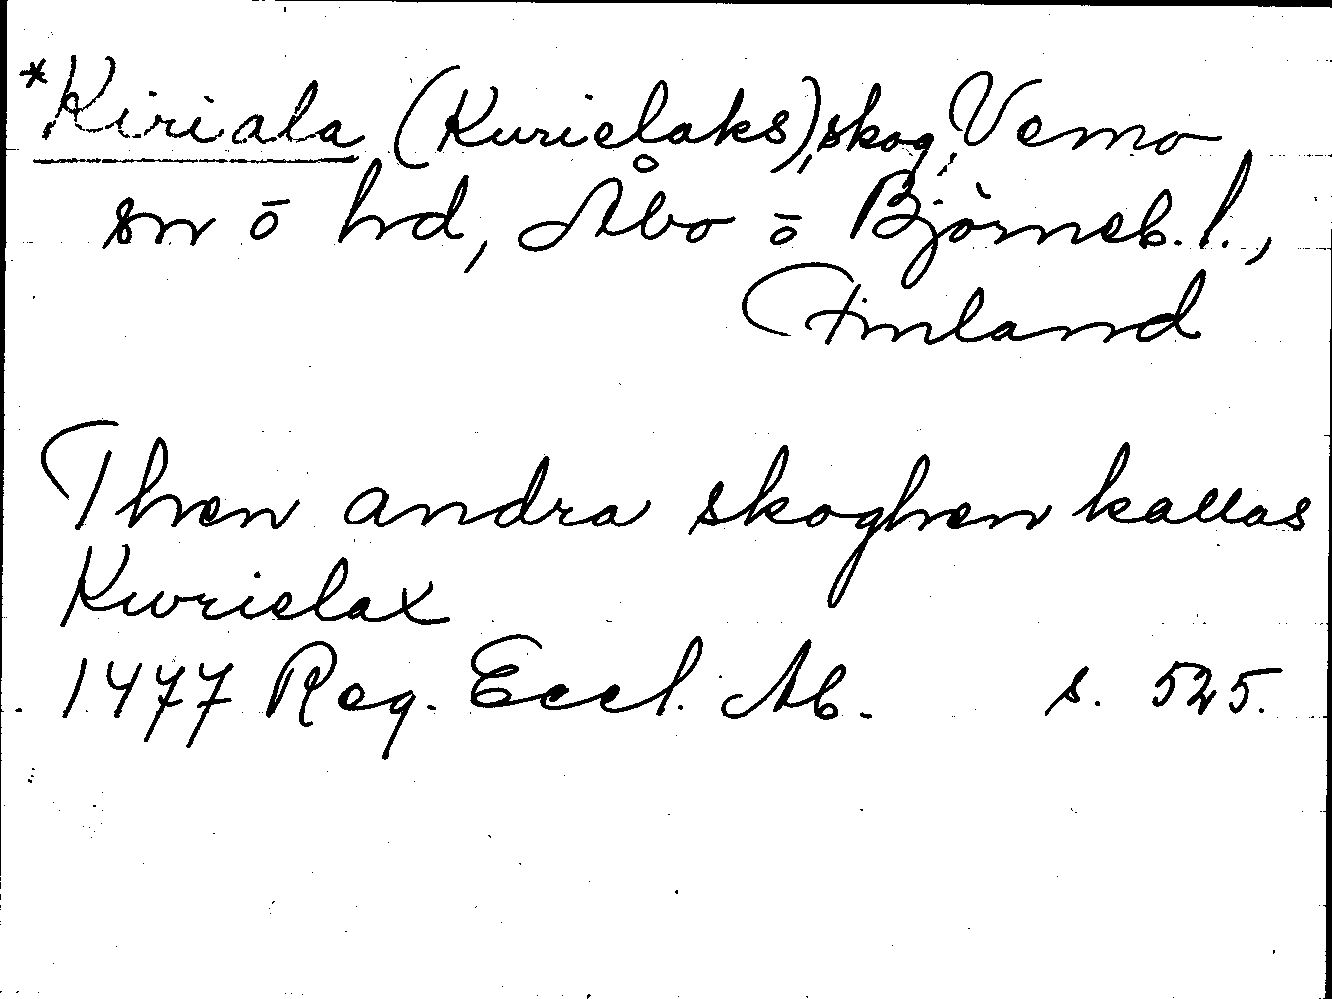 *Kiriala (Kurielaks), skog, Vemo
sn o hd, Åbo o Björneb. l.,
Finland
Then andra skoghen kallas
Kurielax
1477 Reg. Eccl. Ab. s. 525.